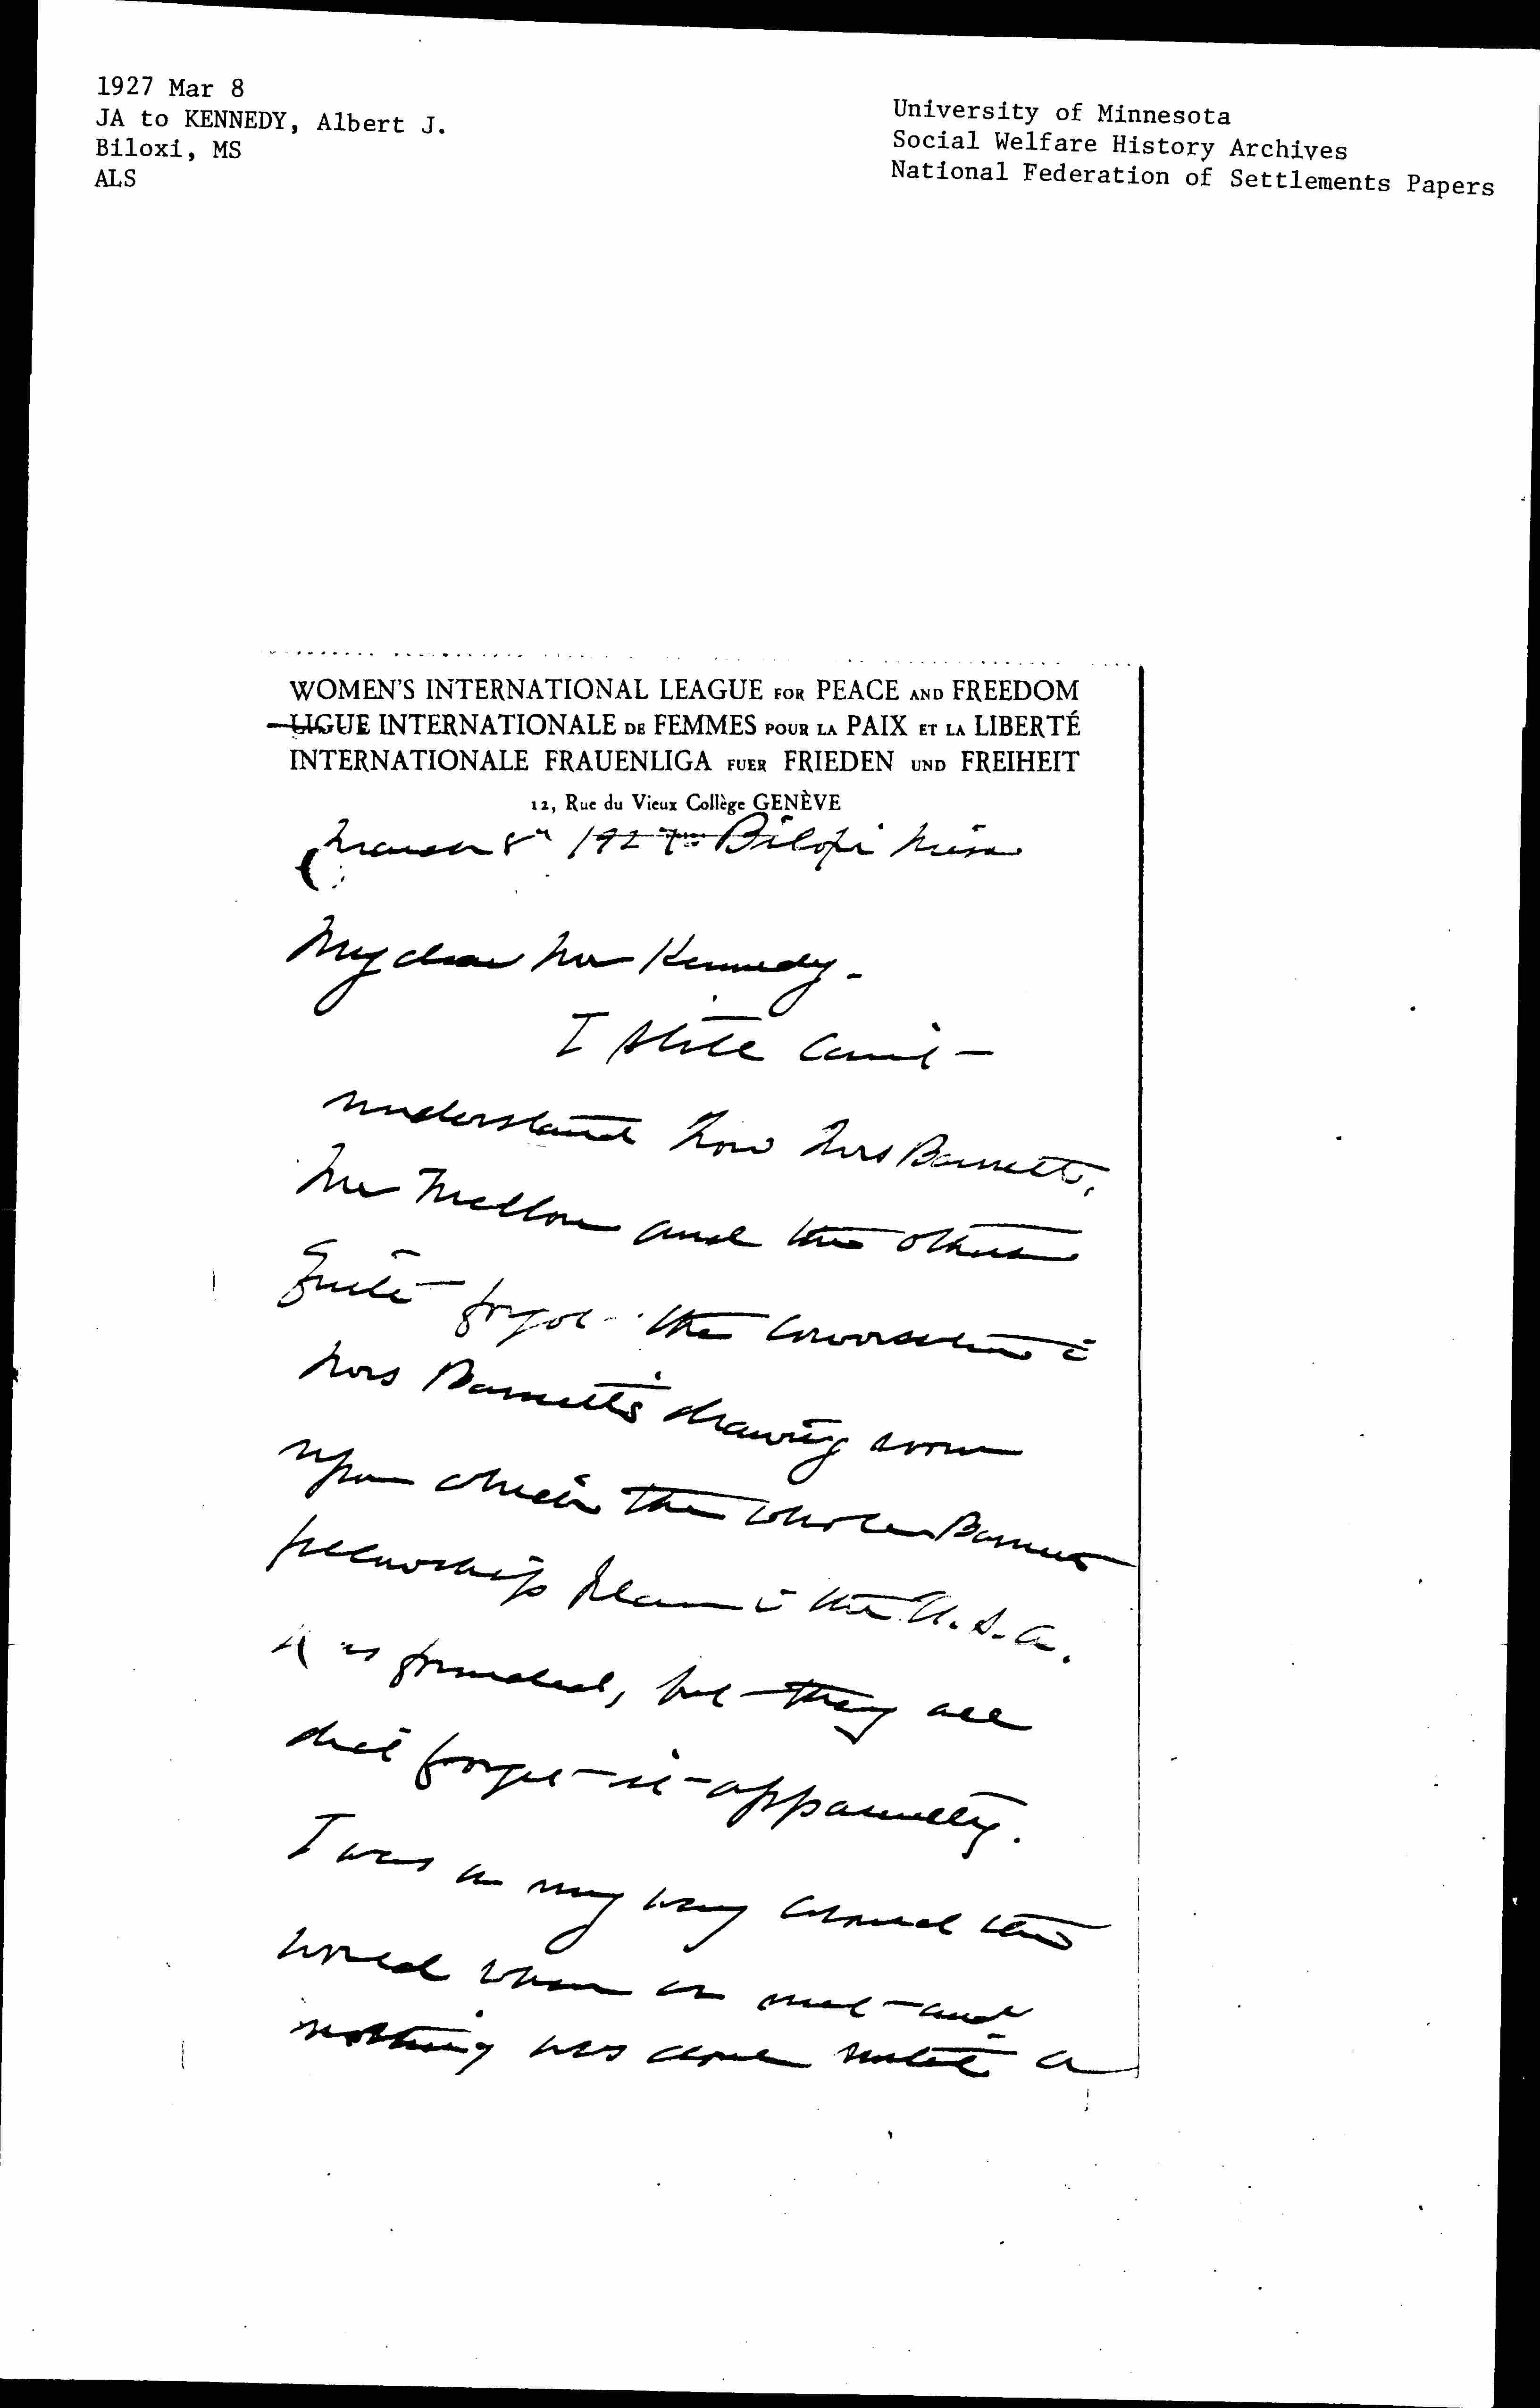 1927 Mar 8
JA to KENNEDY, Albert J.
Biloxi, MS
ALS
University of Minnesota
Social Welfare History Archives
National Federation of Settlements Papers
WOMEN'S INTERNATIONAL LEAGUE FOR PEACE AND FREEDOM
LIGUE INTERNATIONALE DE FEMMES POUR LA PAIX ET LA LIBERTÉ
INTERNATIONALE FRAUENLIGA FUER FRIEDEN UND FREIHEIT
12, Rue du Vieux Collège GENÈVE
March 8" 1927 Biloxi Miss
My dear Mr Kennedy-
I still can't
understand how Mrs Barnett,
Mr Mellon and the others
quite forgot the conversation in
Mrs Barnett's drawing room
upon which the whole Barnett
fellowship plan in the U.S.A.
is founded, but they all
did forget it apparently.
I was on my way around the
world when it met and
nothing was done until a